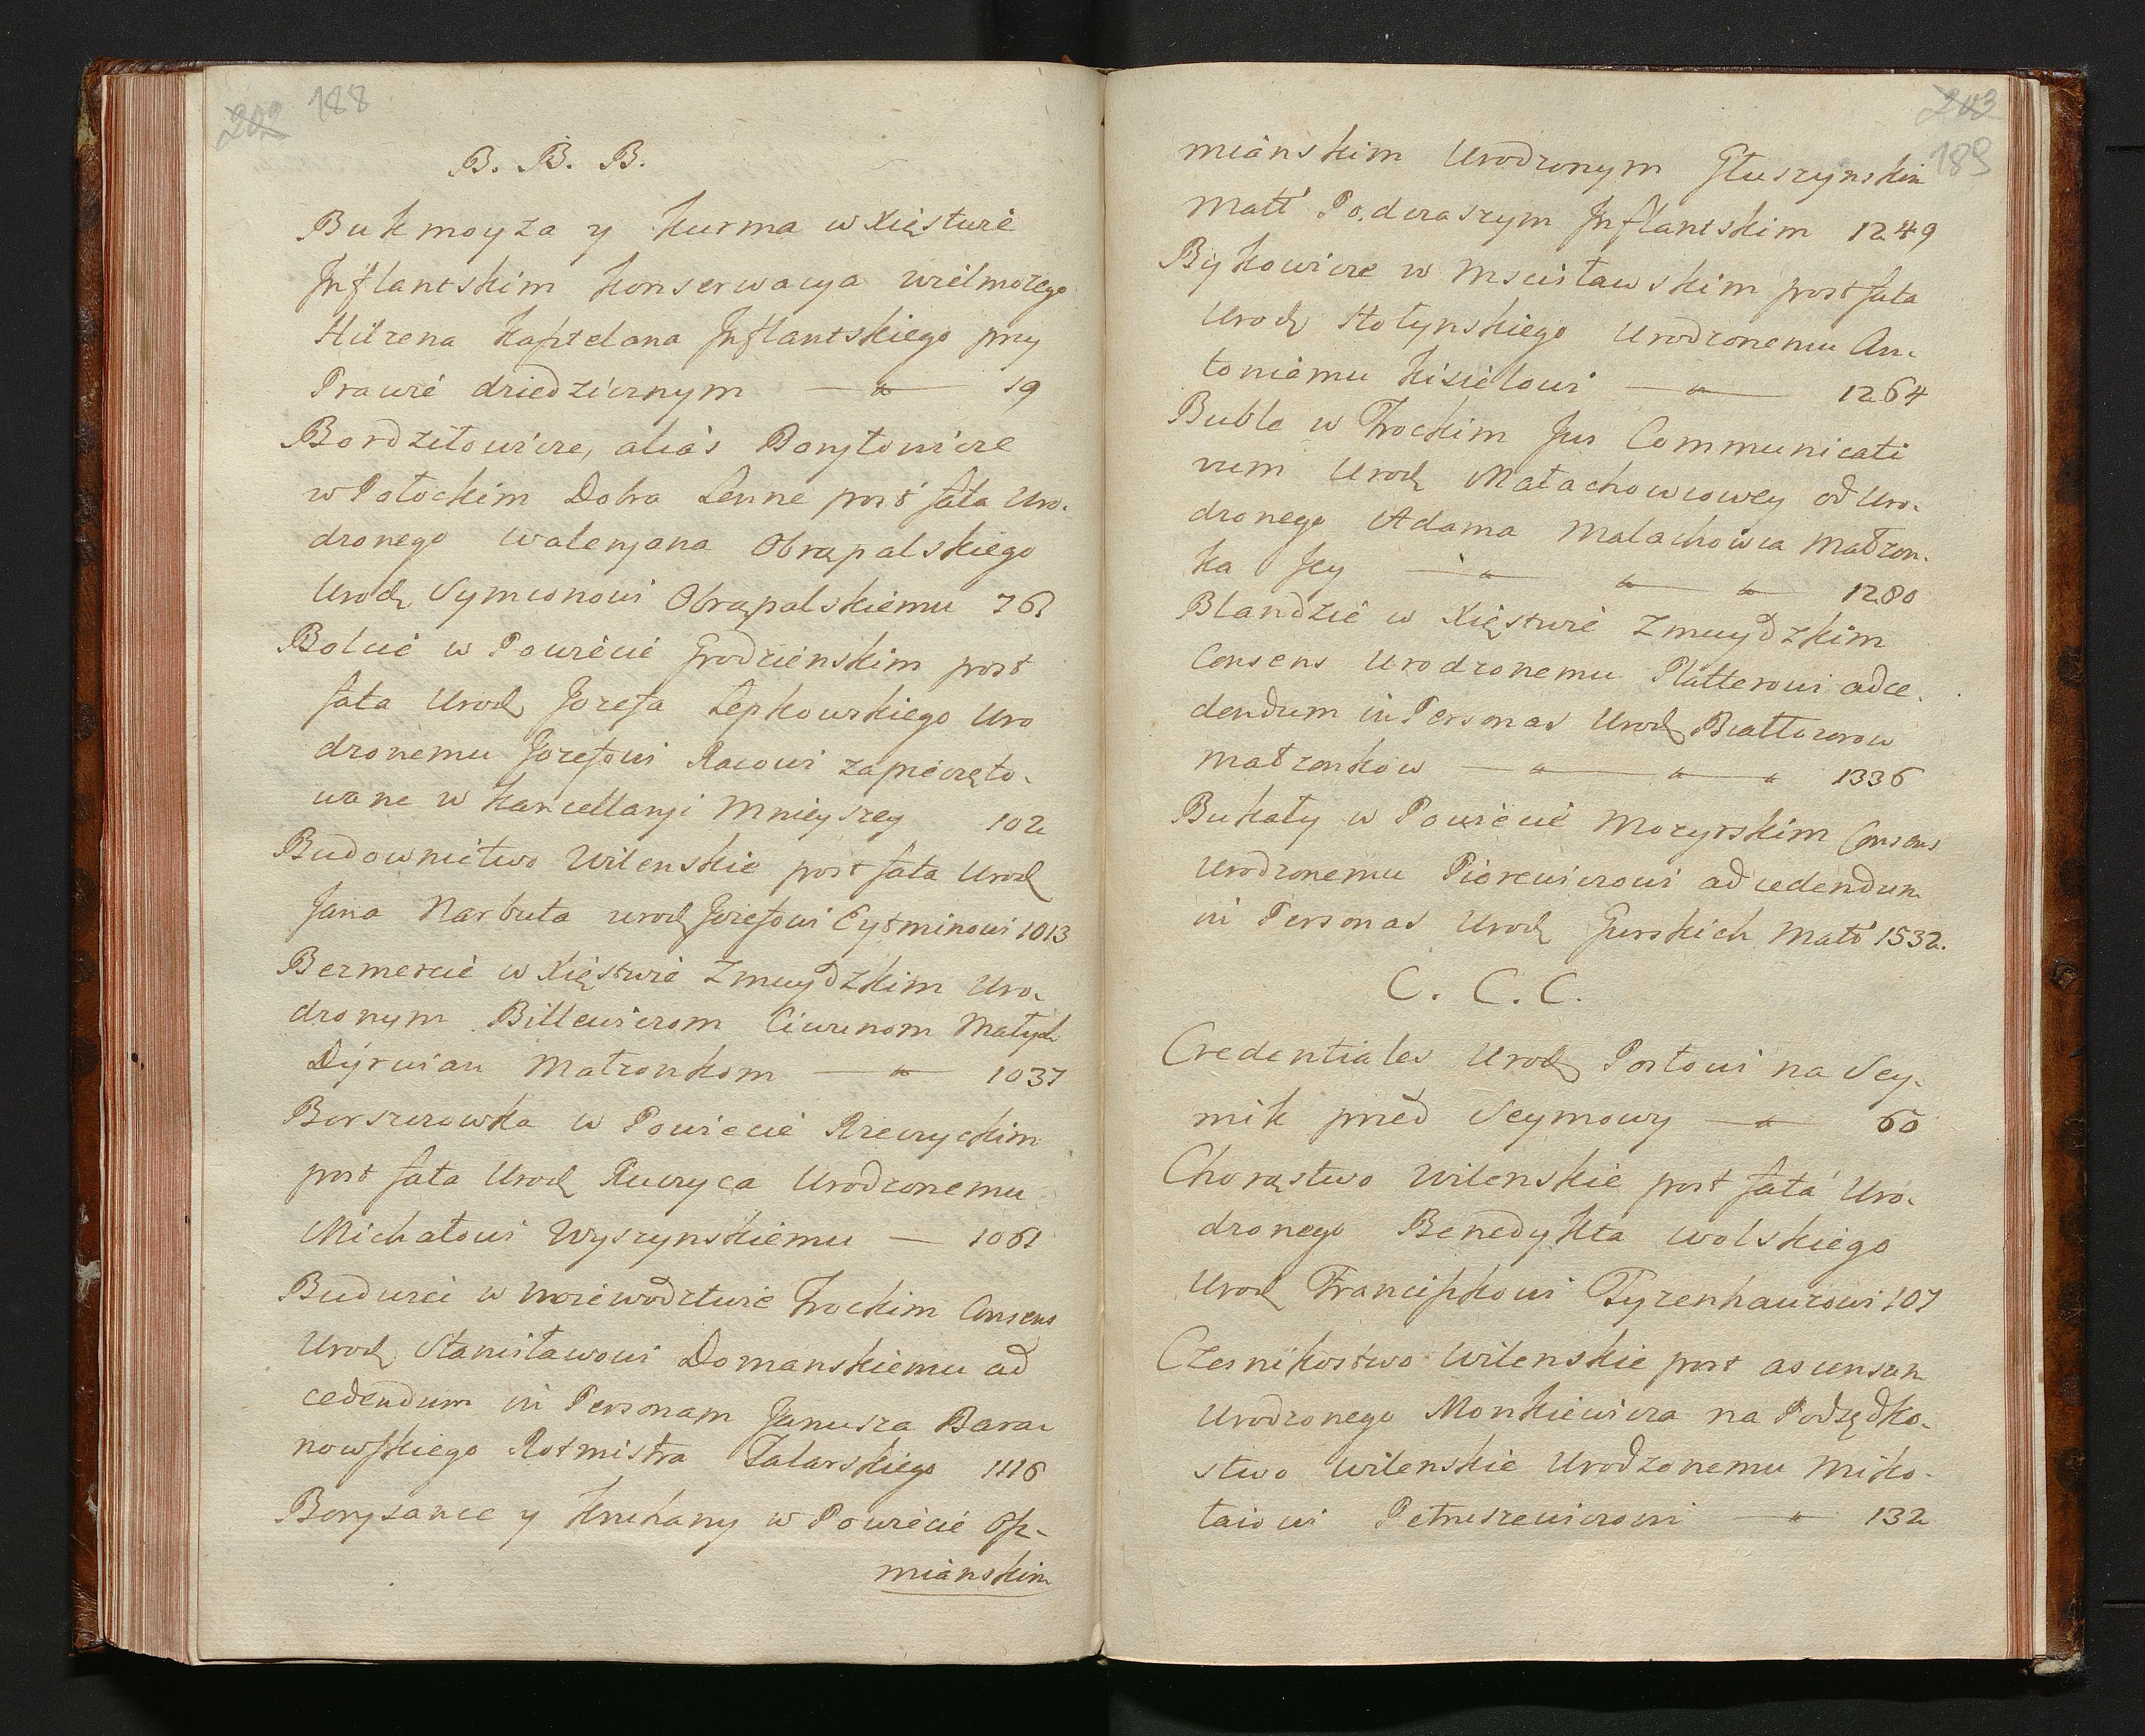 202 188
B. B. B.
Bukmoyza y Kurma w Xięstwie
Inflantskim konserwacya wielmożego
Hilzena Kasztelana Inflantskiego przy
Prawie dziedzicznym — " — 19
Bordziłowicze, alias Boryłowicze
w Połockim Dobra Lenne post fata Uro-
dzonego Waleryana Obrąpalskiego
Urodz Symeonowi Obrąpalskiemu 761
Bolcie w Powiecie Grodzienskim post
fata Urodz Jozefa Lepkowskiego Uro
dzonemu Jozefowi Racowi zapieczęto-
wane w Kancellaryi Mnieyszey 102
Budownictwo Wilenskie post fata Urodz
Jana Narbuta urodz Jozefowi Eytminowi 1013
Bezmercie w Xięstwie Zmuydzkim Uro-
dzonym Billewiczom Ciwunom Małych
Dyrwian Małzonkom — " — 1037
Borszczowka w Powiecie Rzeczyckim
post fata Urodz Ruczyca Urodzonemu
Michałowi Wyszynskiemu — 1061
Budwieci w Woiewodztwie Trockim Consens
Urodz Stanisławowi Domanskiemu ad
cedendum in Personam Janusza Bara-
nowskiego Rotmistra Tatarskiego 1116
Borysance y Kruhany w Powiecie Osz-
mianskim
203
189
mianskim Urodzonym Głuszynskim
Małż Podczaszym Inflantskim 1249
Bykowicze w Mscisławskim post fata
Urodz Hołynskiego Urodzonemu An-
toniemu Kisielowi — " — 1264
Buble w Trockim Jus Communicati
vum Urodz Małachowcowey od Uro-
dzonego Adama Malachowca Małżon-
ka Jey — " — " — " — 1280
Blandzie w Xięstwie Zmuydzkim
Consens Urodzonemu Platterowi ad ce-
dendum in Personas Urodz Białłozorow
Małżonkow — " — " — " 1336
Bukaty w Powiecie Mozyrskim Consens
Urodzonemu Piorewiczowi ad cedendum
in Personas Urodz Gurskich Małż 1532.
C. C. C.
Credentiales Urodz Posłowi na Sey-
mik przed Seymowy — " — 60
Chorąstwo Wilenskie post fata Uro-
dzonego Benedykta Wolskiego
Urodz Franciszkowi Tyzenhauzowi 107
Czesnikostwo Wilenskie post ascensum
Urodzonego Monkiewicza na Podsędko-
stwo Wilenskie Urodzonemu Miko-
łaiowi Petruszewiczowi — " — 132